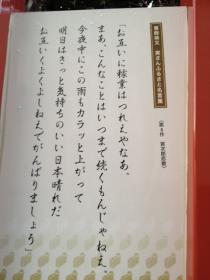 葛飾柴又 寅さんふるさと名言集
（第8作 寅次郎恋歌）
「お互いに稼業はつれえやなあ。
まあ、こんなことはいつまで続くもんじゃねえ。
今夜中にこの雨もカラッと上がって
明日はきっと気持ちのいい日本晴れだ。
お互いくよくよしねえでがんばりましょう」